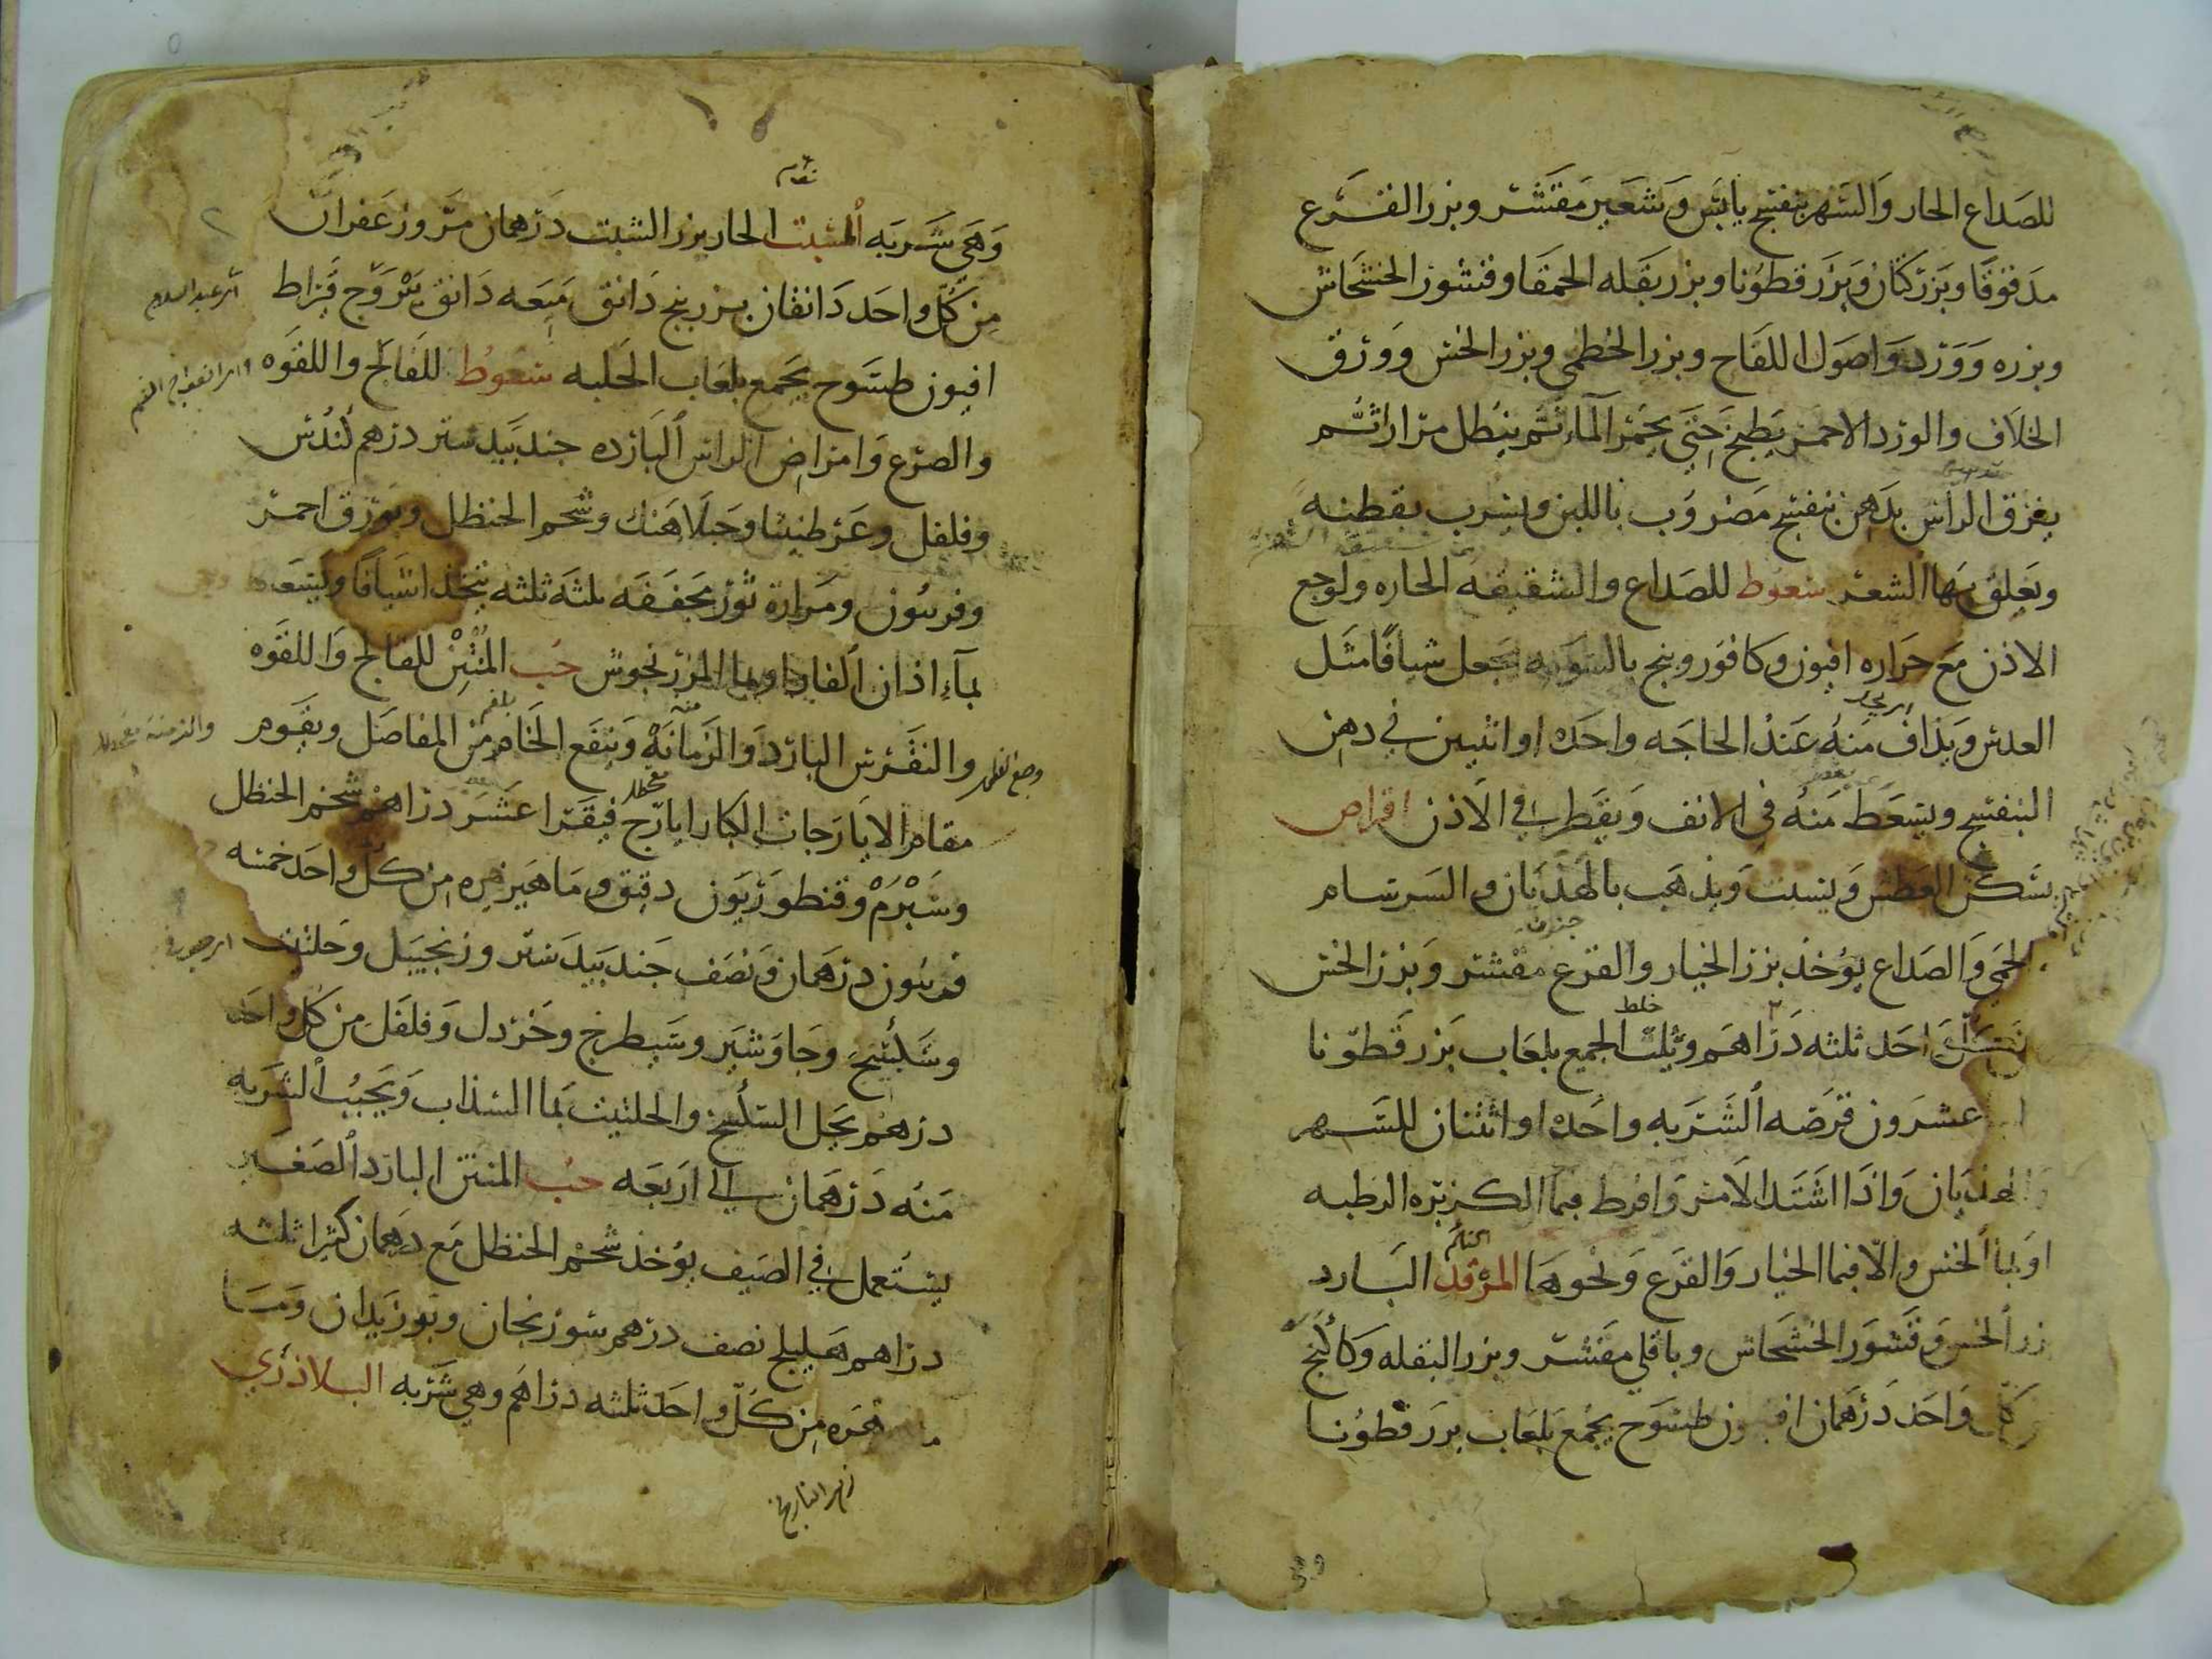 للصداع الحار والسهر بنفسج يابس وشعير مقشر وبزر القرع
مدقوقا وبزر كتان وبزر قطونا وبزر بقله الحمقا وقشور الخشخاش
وبزره وورد واصول اللفاح وبزر الخطمي وبزر الخس وورق
الخلاف والورد الاحمر يطبخ حتي يحمر الماء ثم ينطل مرارا ثم
يغرق الراس بدهن بنفسج مضروب باللبن ويشرب بقطنه
ويعلق بها الشعر سعوط للصداع والشقيقه الحاره ولوجع
الاذن مع حراره افيون وكافور وبنج بالسويه يجعل شيافا مثل
العدس ويذاف منه عند الحاجه واحده او اثنين في دهن
البنفسج ويسعط منه في الانف ويقطر في الاذن اقراص
يسكن العطش ويسبت ويذهب بالهذيان والسرسام
والحمي والصداع يؤخذ بزر الخيار والقرع مقشر وبزر الخس
واحد ثلثه دراهم وثلث الجميع بلعاب بزر قطونا
عشرون قرصه الشربه واحده او اثنتان للسهر
والهذيان واذا اشتد الامر وافرط فبما الكزبره الرطبه
او بما الخس والا فبما الخيار والقرع ونحوهما المرقد البارد
بزر الخس وقشور الخشخاش وباقلي مقشر وبزر البقله وكاكنج
كل واحد درهمان افيون طسوج يجمع بلعاب بزر قطونا
وهي شربه المسبت الحار بزر الشبت درهمان مر وزعفران
من كل واحد دانقان بزر بنج دانق ميعه دانق يبروج قيراط
افيون طسوج يجمع بلعاب الحلبه سعوط للفالج واللقوه
والصرع وامراض الراس البارده جندبيدستر درهم كندس
وفلفل وعرطنيثا وجبلاهنك وشحم الحنظل وبورق احمر
وفربيون ومرارة ثور مجففه ثلثه ثلثه يتخذ اشيافا ويسعط
بماء اذان الفار او بما المرزنجوش حب المنتن للفالج واللقوه
والنقرس البارد والزمانه وينفع الخام من المفاصل ويقوم
مقام الايارجات الكبار ايارج فيقرا عشر دراهم شحم الحنظل
وشبرم وقنطوريون دقيق وماهيزهره من كل واحد خمسه
فربيون درهمان ونصف جندبيدستر وزنجبيل وحلتيت
وسكبينج وجاوشير وشيطرج وخردل وفلفل من كل واحد
درهم يحل السكبينج والحلتيت بما السذاب ويحبب الشربه
منه درهمان الي اربعه حب المنتن البارد الصغير
يستعمل في الصيف يؤخذ شحم الحنظل مع درهمان كثيرا ثلثه
دراهم هليلج نصف درهم سورنجان وبوزيدان
من كل واحد ثلثه دراهم وهي شربه البلاذري